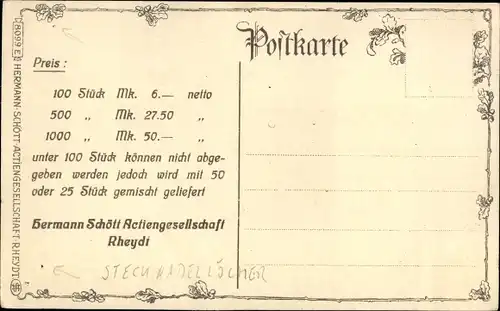 8099 E HERMANN·SCHÖTT·ACTIENGESELLSCHAFT·RHEYDT
Postkarte
Preis :
100 Stück Mk. 6.— netto
500 „ Mk. 27.50 „
1000 „ Mk. 50.— „
unter 100 Stück können nicht abge-
geben werden jedoch wird mit 50
oder 25 Stück gemischt geliefert
Hermann Schött Actiengesellschaft
Rheydt
STECKNADELLÖCHER